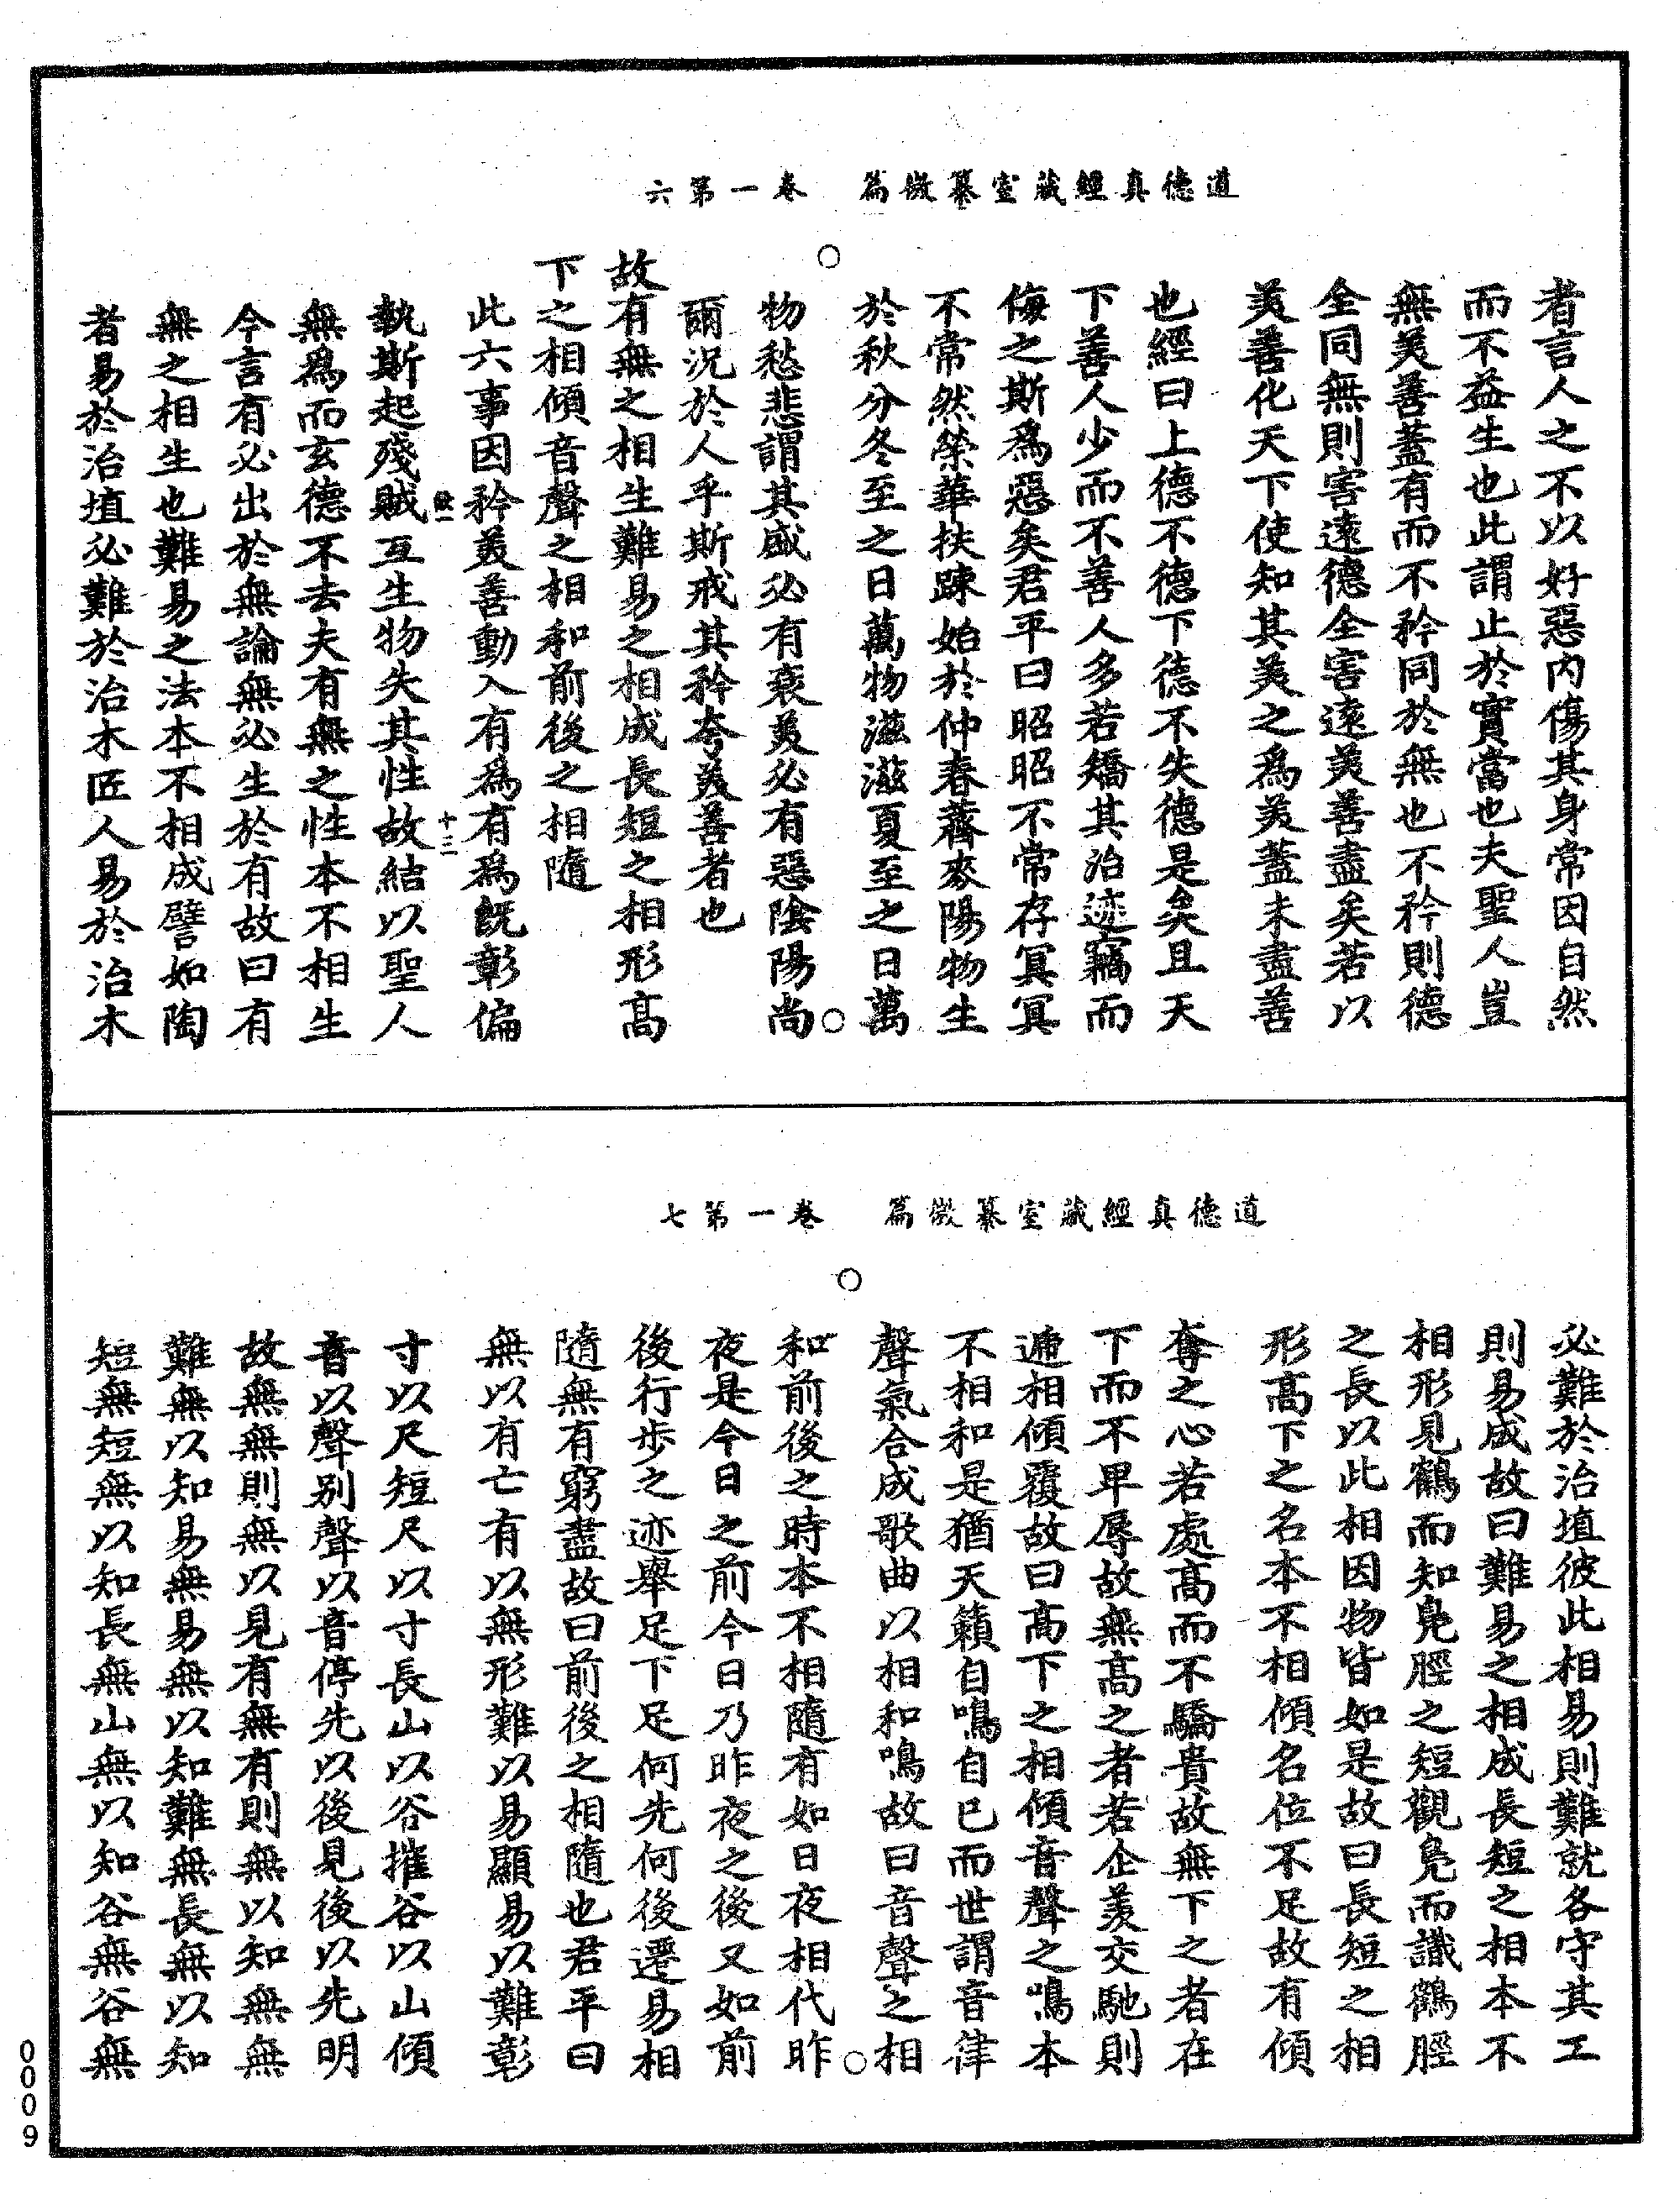 道德真經藏室纂微篇　卷一第六
者言人之不以好惡內傷其身常因自然
而不益生也此謂止於實當也夫聖人豈
無美善蓋有而不矜同於無也不矜則德
全同無則害遠德全害遠美善盡矣若以
美善化天下使知其美之爲美蓋未盡善
也經曰上德不德下德不失德是矣且天
下善人少而不善人多若矯其治迹竊而
侮之斯爲惡矣君平曰昭昭不常存冥冥
不常然榮華扶踈始於仲春薺麥陽物生
於秋分冬至之日萬物滋滋夏至之日萬
物愁悲謂其盛必有衰美必有惡陰陽尚
爾況於人乎斯戒其矜夸美善者也
故有無之相生難易之相成長短之相形高
下之相傾音聲之相和前後之相隨
此六事因矜美善動入有爲有爲旣彰偏
十三
執斯起殘賊互生物失其性故結以聖人
無爲而玄德不去夫有無之性本不相生
今言有必出於無論無必生於有故曰有
無之相生也難易之法本不相成譬如陶
者易於治埴必難於治木匠人易於治木
道德真經藏室纂微篇　卷一第七
必難於治埴彼此相易則難就各守其工
則易成故曰難易之相成長短之相本不
相形見鶴而知鳧脛之短觀鳧而識鶴脛
之長以此相因物皆如是故曰長短之相
形高下之名本不相傾名位不足故有傾
奪之心若處高而不驕貴故無下之者在
下而不卑辱故無高之者若企羨交馳則
遞相傾覆故曰高下之相傾音聲之鳴本
不相和是猶天籟自鳴自已而世謂音律
聲氣合成歌曲以相和鳴故曰音聲之相
和前後之時本不相隨有如日夜相代昨
夜是今日之前今日乃昨夜之後又如前
後行步之迹舉足下足何先何後遷易相
隨無有窮盡故曰前後之相隨也君平曰
無以有亡有以無形難以易顯易以難彰
寸以尺短尺以寸長山以谷摧谷以山傾
音以聲别聲以音停先以後見後以先明
故無無則無以見有無有則無以知無無
難無以知易無易無以知難無長無以知
短無短無以知長無山無以知谷無谷無
0009